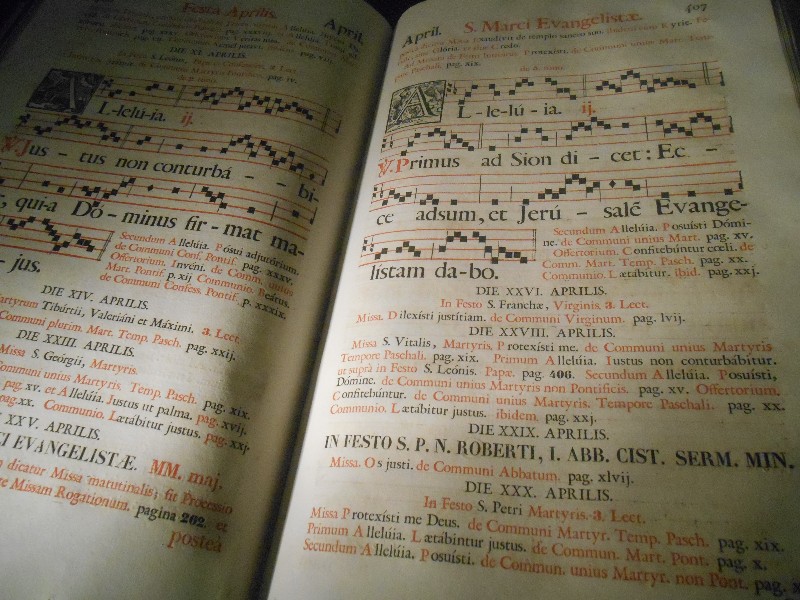 Festa Aprilis. April.
DIE XI. APRILIS.
A
L-lelú-ia. ij.
℣. Jus - tus non conturbá - - bi-
t, qui-a Dó - minus fir - mat ma-
- jus.
Secundum Allelúia. Pósui adjutórium.
de Communi Conf. Pontif. pag. xxxv.
Offertorium. Invéni. de Comm. unius
Mart. Pontif. p. xij. Communio. Beátus.
de Communi Confess. Pontif. p. xxxix.
DIE XIV. APRILIS.
Martyrum Tibúrtii, Valeriáni et Máximi. 3. Lect.
Communi plurim. Mart. Temp. Pasch. pag. xxij.
DIE XXIII. APRILIS.
Missa S. Geórgii, Martyris.
Communi unius Martyris. Temp. Pasch. pag. xix.
pag. xv. et Allelúia. Justus ut palma. pag. xvij.
pag. xx. Communio. Lætábitur justus. pag. xxj.
XXV. APRILIS.
CI EVANGELISTÆ. MM. maj.
dicatur Missa matutinalis; fit Processio
Missam Rogationum. pagina 202. et
posteà
April. S. Marci Evangelistæ. 407
pag. xix.
A
L - le-lú - ia. ij.
℣. Primus ad Sion di - cet: Ec -
ce adsum, et Jerú - salẽ Evange-
listam da-bo.
Secundum Allelúia. Posuísti Dómi-
ne. de Communi unius Mart. pag. xv.
Offertorium. Confitebúntur cœli. de
Comm. Mart. Temp. Pasch. pag. xx.
Communio. Lætábitur. ibid. pag. xxj.
DIE XXVI. APRILIS.
In Festo S. Franchæ, Virginis. 3. Lect.
Missa. Dilexísti justítiam. de Communi Virginum. pag. lvij.
DIE XXVIII. APRILIS.
Missa S. Vitalis, Martyris, Protexísti me. de Communi unius Martyris
Tempore Paschali. pag. xix. Primum Allelúia. Justus non conturbábitur.
ut suprà in Festo S. Leónis. Papæ. pag. 406. Secundum Allelúia. Posuísti,
Dómine. de Communi unius Martyris non Pontificis. pag. xv. Offertorium.
Confitebúntur. de Communi unius Martyris. Tempore Paschali. pag. xx.
Communio. Lætábitur justus. ibidem. pag. xxj.
DIE XXIX. APRILIS.
IN FESTO S. P. N. ROBERTI, I. ABB. CIST. SERM. MIN.
Missa. Os justi. de Communi Abbatum. pag. xlvij.
DIE XXX. APRILIS.
In Festo S. Petri Martyris. 3. Lect.
Missa Protexísti me Deus. de Communi Martyr. Temp. Pasch. pag. xix.
Primum Allelúia. Lætábitur justus. de Commun. Mart. Pont. pag. x.
Secundum Allelúia. Posuísti. de Commun. unius Martyr. non Pont. pag.